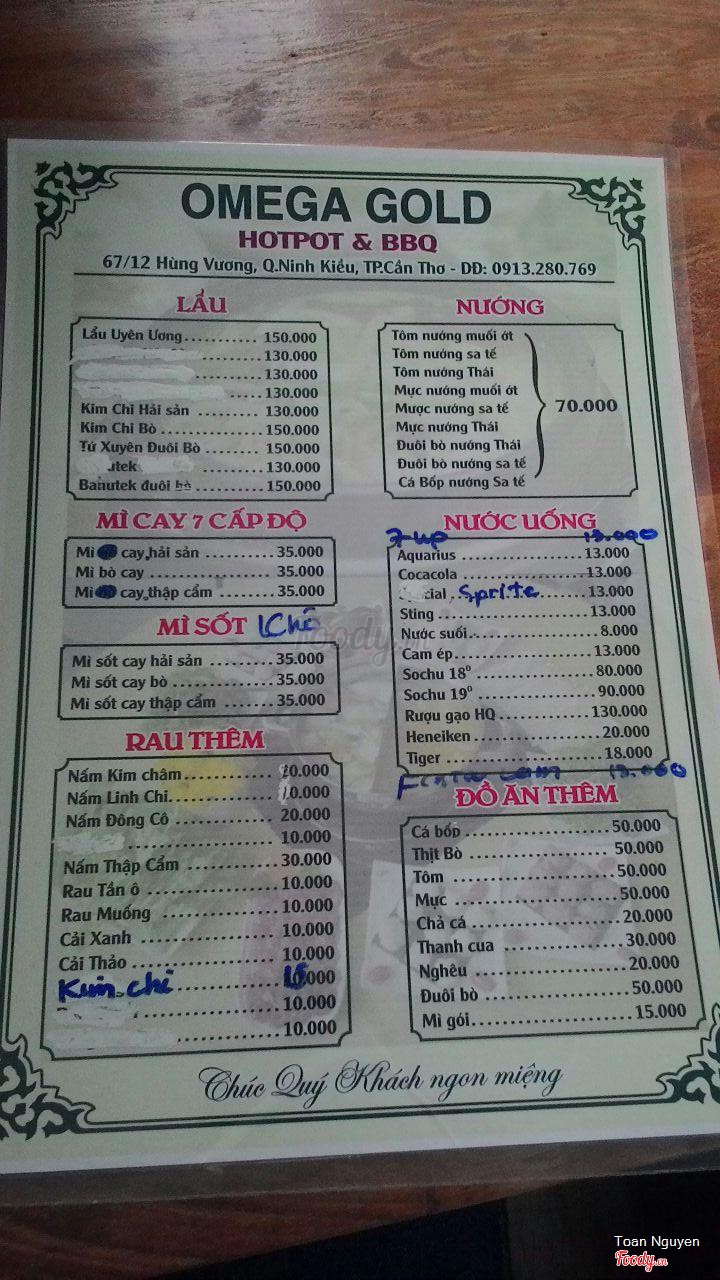 OMEGA GOLD
HOTPOT & BBQ
67/12 Hùng Vương, Q.Ninh Kiều, TP.Cần Thơ - DĐ: 0913.280.769
LẨU
Lẩu Uyên Ương........... 150.000
130.000
130.000
130.000
Kim Chi Hải sản .......... 130.000
Kim Chi Bò ................ 150.000
Tứ Xuyên Đuôi Bò ........ 150.000
130.000
Banutek đuôi bò ............ 150.000
MÌ CAY 7 CẤP ĐỘ
Mì cay hải sản ............ 35.000
Mì bò cay ..................... 35.000
Mì cay thập cẩm .......... 35.000
MÌ SỐT Khô
Mì sốt cay hải sản ......... 35.000
Mì sốt cay bò ................ 35.000
Mì sốt cay thập cẩm ....... 35.000
RAU THÊM
Nấm Kim châm............. 20.000
Nấm Linh Chi............... .000
Nấm Đông Cô .............. 20.000
10.000
Nấm Thập Cẩm ............ 30.000
Rau Tần ô .................. 10.000
Rau Muống ................ 10.000
Cải Xanh ................... 10.000
Cải Thảo .................... 10.000
Kim chi ................. .000
10.000
10.000
NƯỚNG
Tôm nướng muối ớt
Tôm nướng sa tế
Tôm nướng Thái
Mực nướng muối ớt
Mược nướng sa tế
Mực nướng Thái
Đuôi bò nướng Thái
Đuôi bò nướng sa tế
Cá Bốp nướng Sa tế
70.000
NƯỚC UỐNG
7 up 13.000
Aquarius ..................... 13.000
Cocacola ..................... 13.000
Sprite ............ 13.000
Sting .......................... 13.000
Nước suối..................... 8.000
Cam ép....................... 13.000
Sochu 18⁰ ................... 80.000
Sochu 19⁰ ................... 90.000
Rượu gạo HQ .............. 130.000
Heneiken ..................... 20.000
Tiger .......................... 18.000
cam
ĐỒ ĂN THÊM
Cá bốp ....................... 50.000
Thịt Bò ....................... 50.000
Tôm .......................... 50.000
Mực .......................... 50.000
Chả cá ....................... 20.000
Thanh cua .................. 30.000
Nghêu ....................... 20.000
Đuôi bò ..................... 50.000
Mì gói........................ 15.000
Chúc Quý Khách ngon miệng
foody.vn
Toan Nguyen
Foody.vn